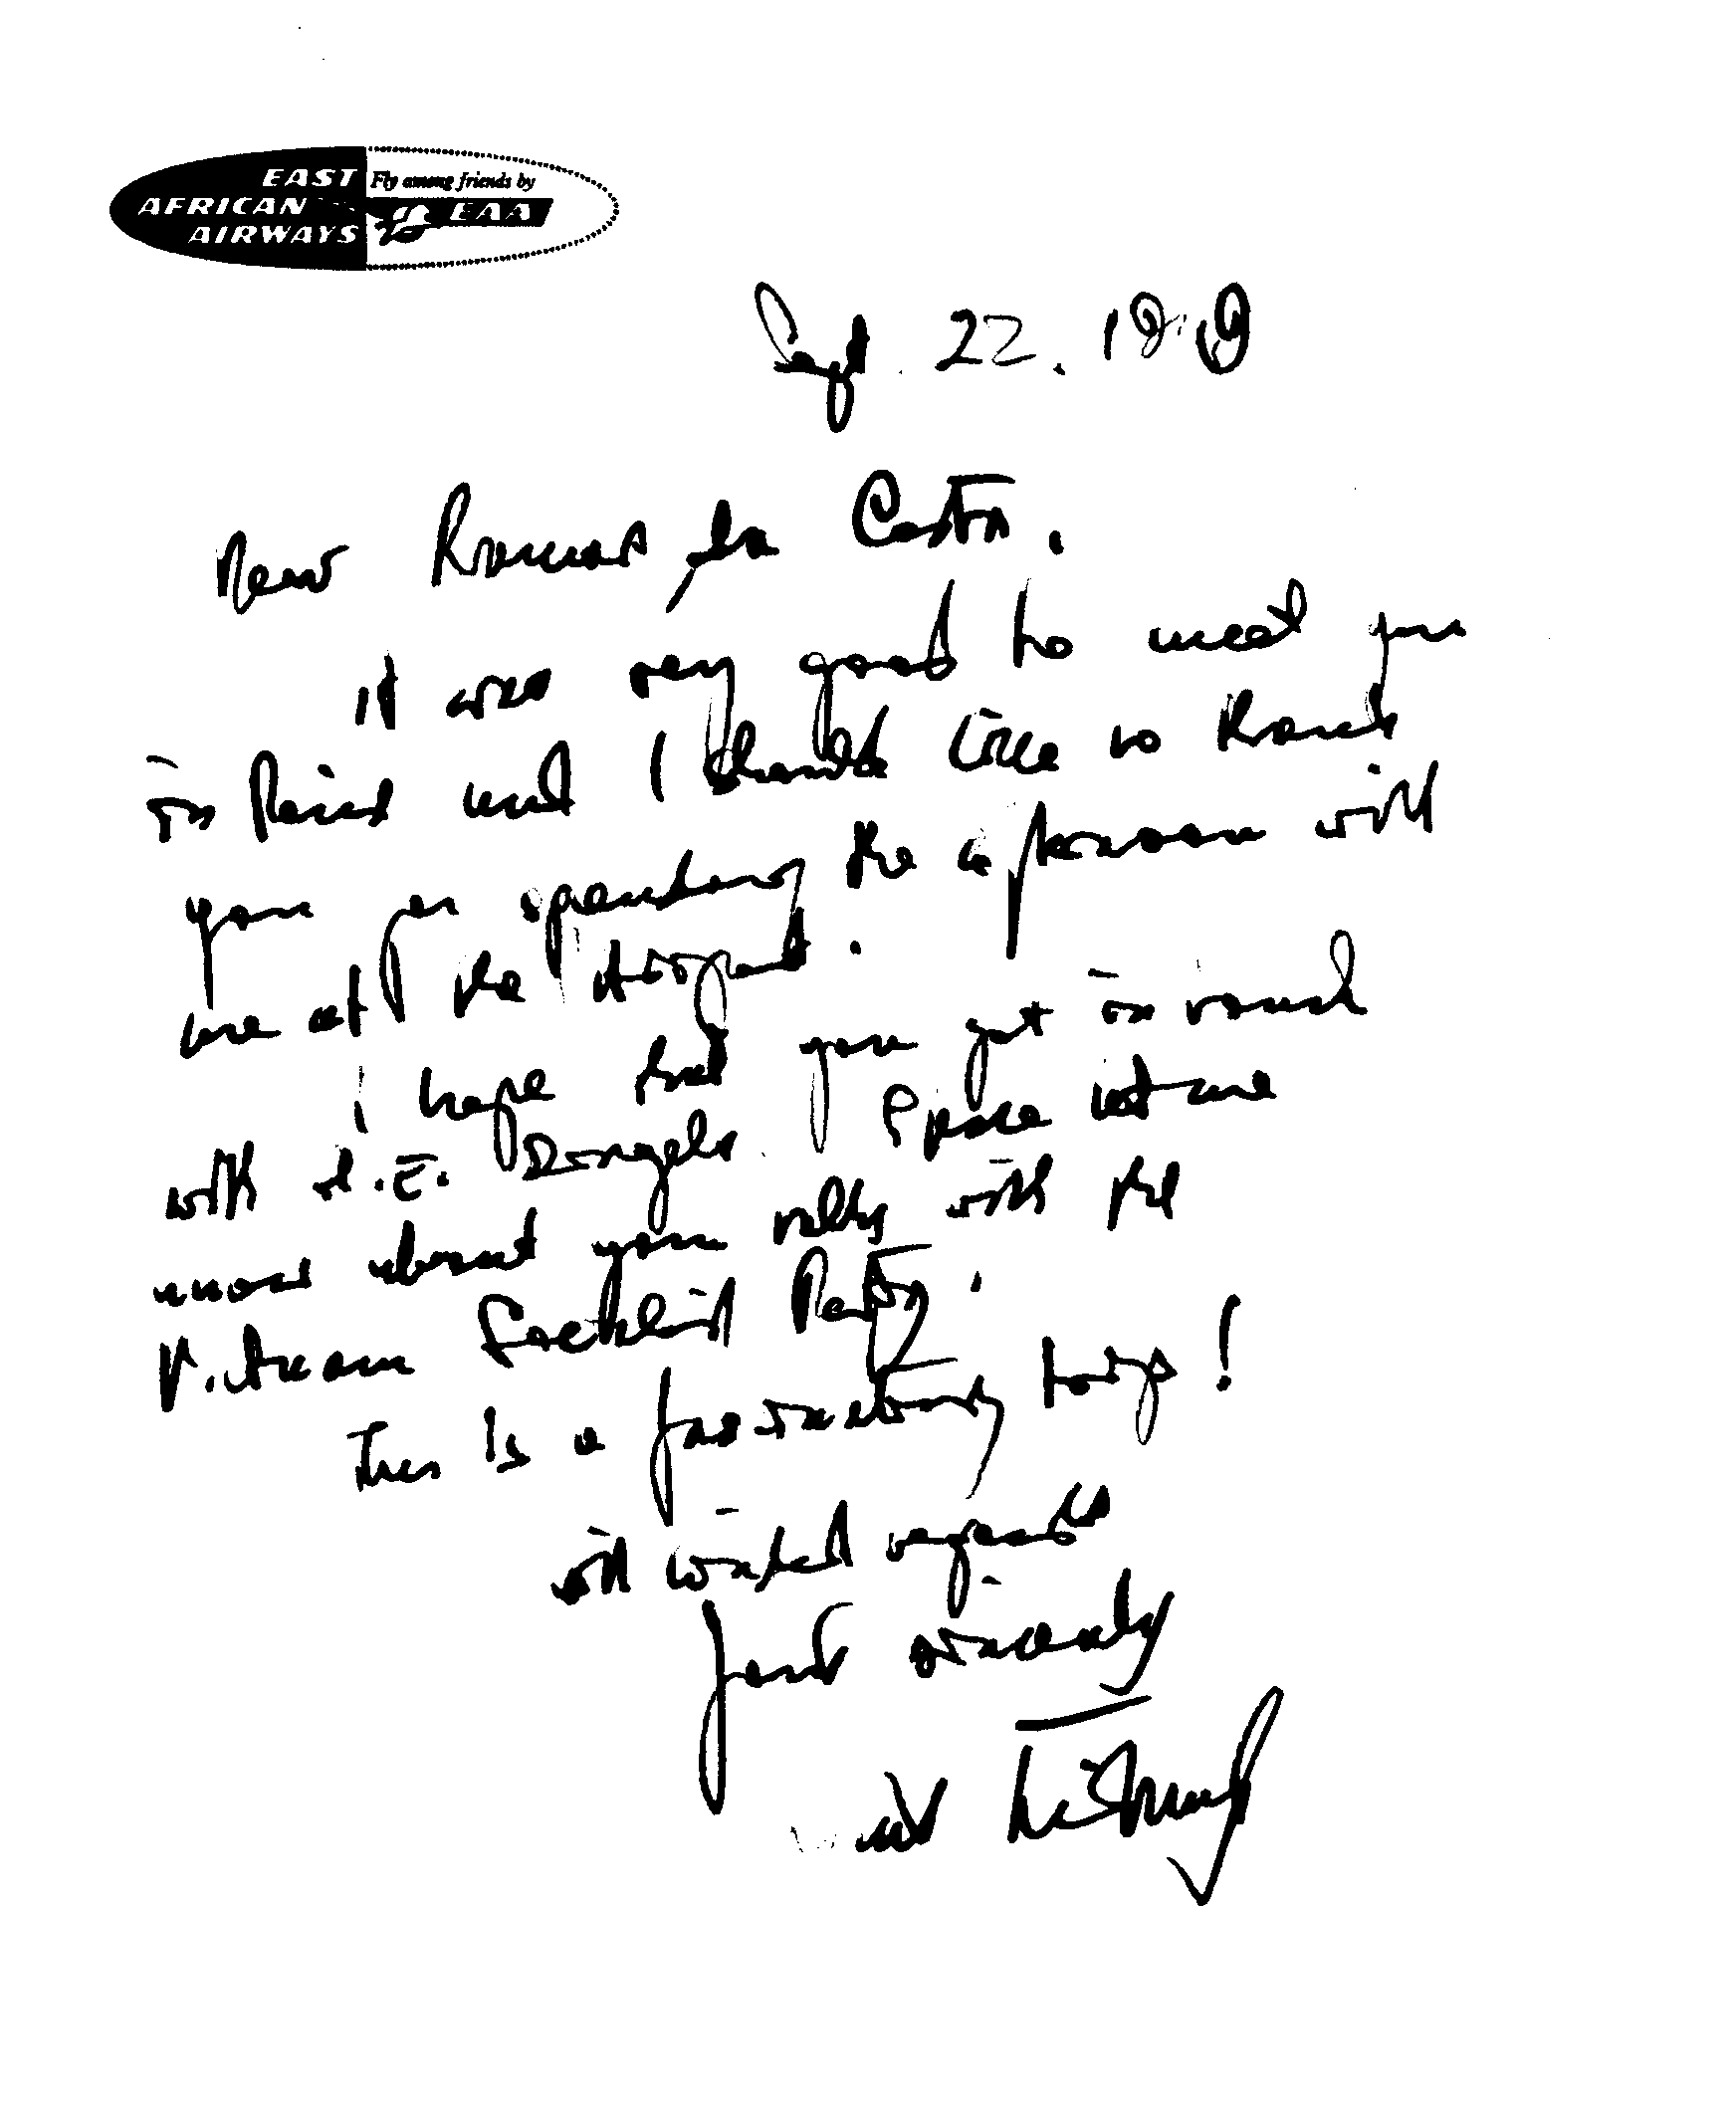 EAST AFRICAN AIRWAYS
Fly among friends by
EAA
Sept. 22. 19
Dear Thomas da Costa.
it was very good to meet you
in Paris and I should like to thank
you for spending the afternoon with
me at the Airport.
I hope that you get in touch
with Dingeldr. Please let me
more about your talks with the
Vietnam Socialist Party.
This is a fascinating trip!
with kindest regards
yours sincerely